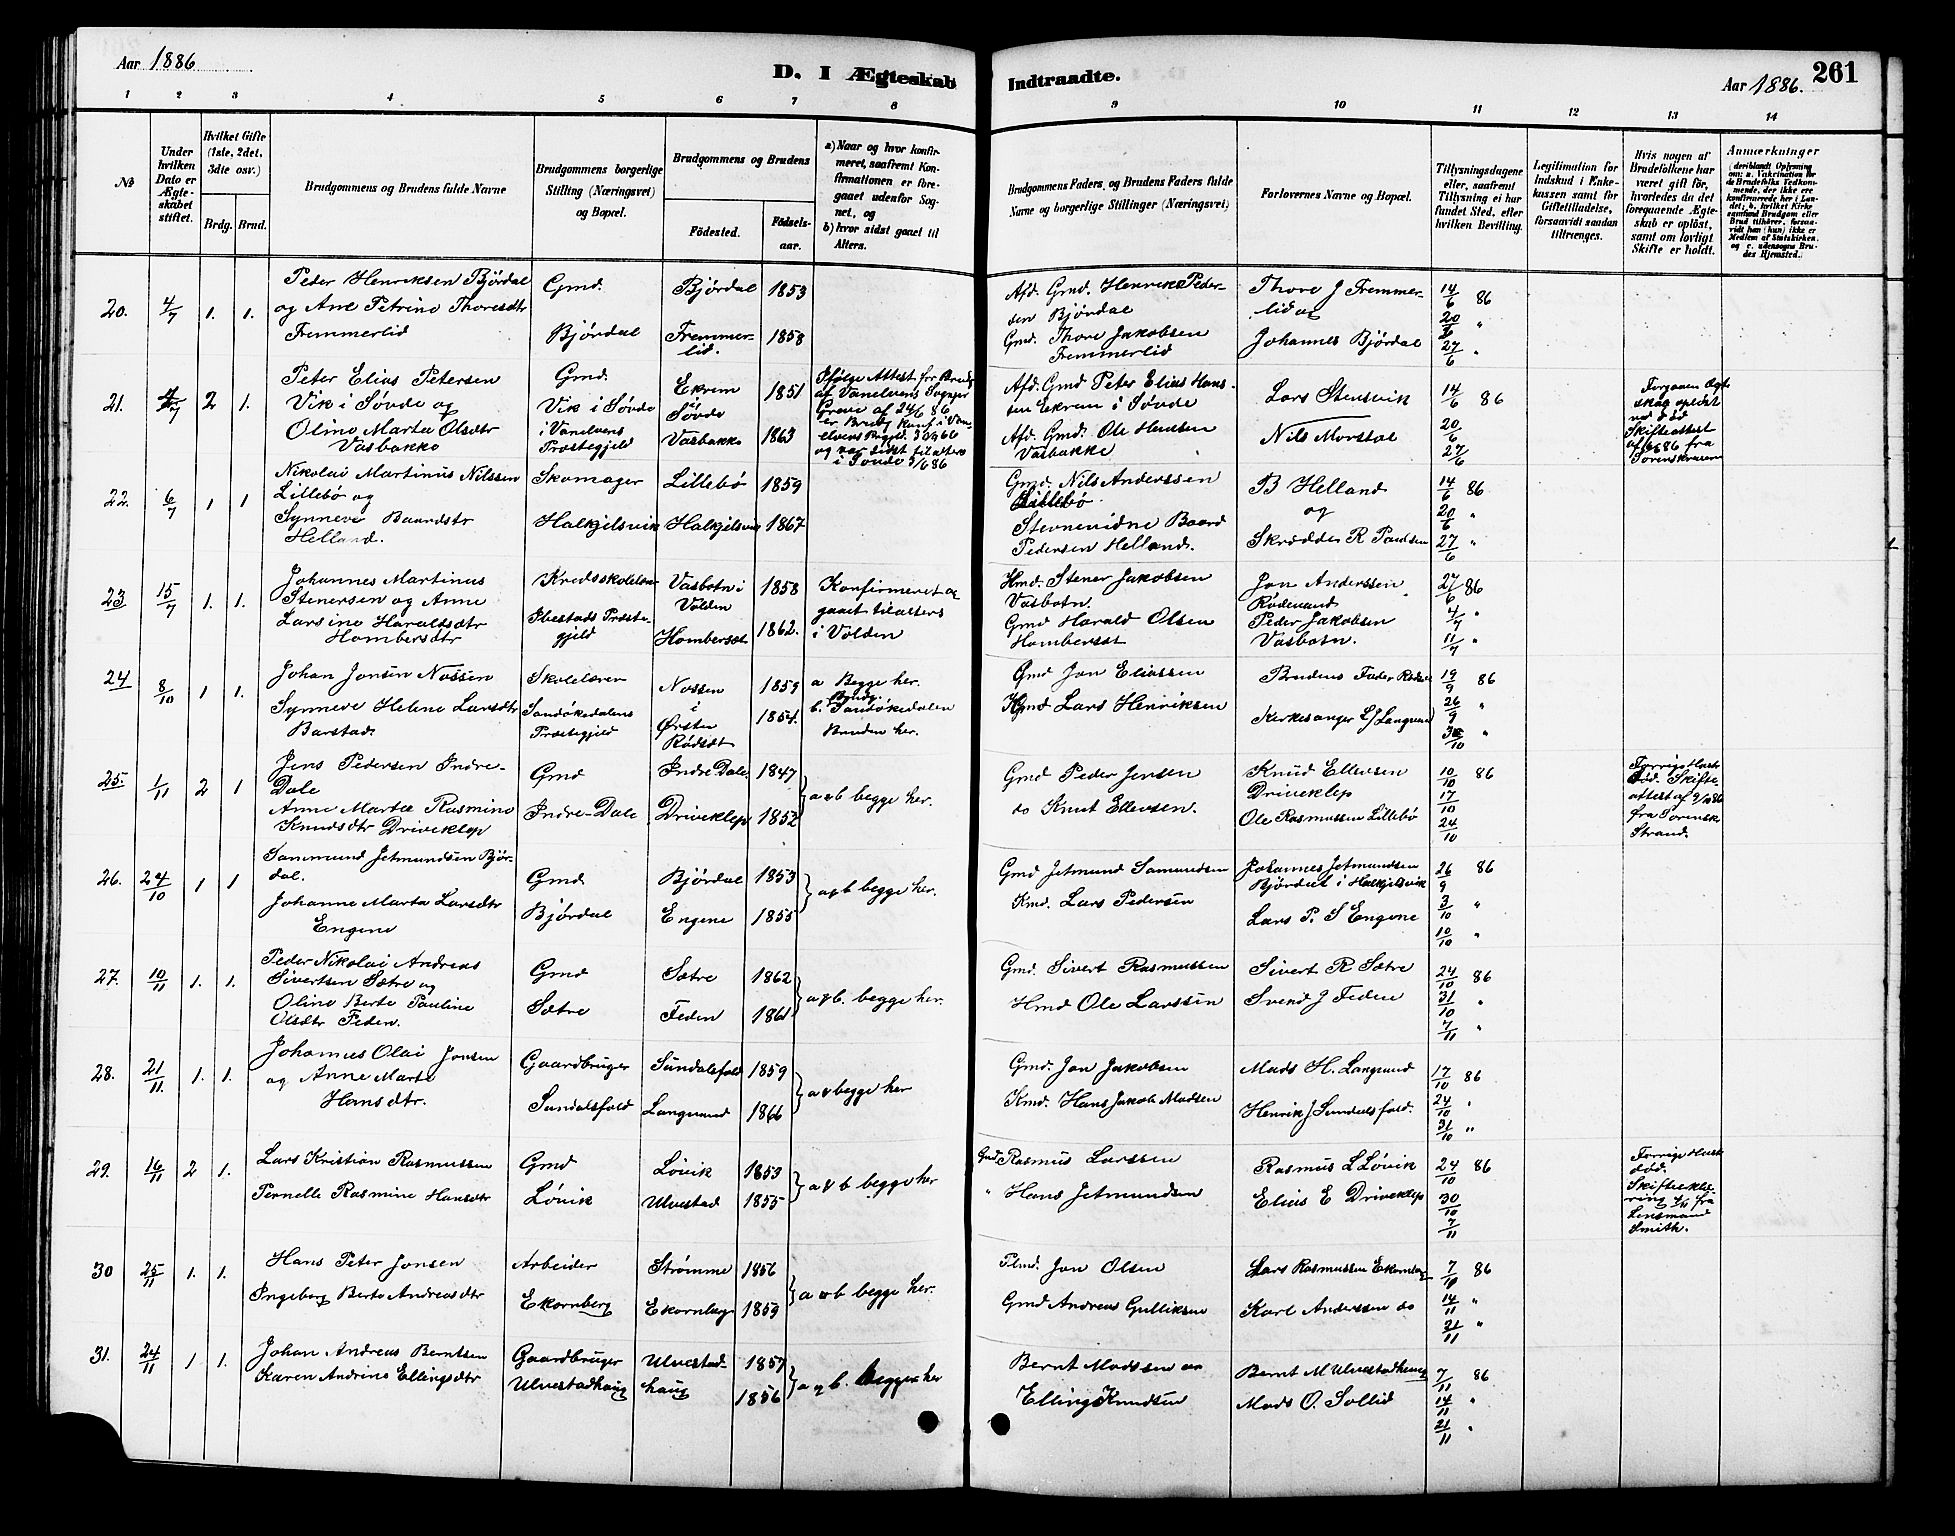 Aar 1886
D. I Ægteskab
Indtraadte.
Aar 1886.
261
1 2 3 4 5 6 7 8 9 10 11 12 13 14
№
Under hvilken Dato er Ægteskabet stiftet.
Hvilket Gifte (1ste, 2det, 3die osv.)
Brdg. Brud.
Brudgommens og Brudens fulde Navne
Brudgommens borgerlige Stilling (Næringsvei) og Bopæl.
Brudgommens og Brudens
Fødested.
Fødsels-aar.
a) Naar og hvor konfirmeret, saafremt Konfirmationen er foregaaet udenfor Sognet, og
b) hvor sidst gaaet til Alters.
Brudgommens Faders, og Brudens Faders fulde Navne og borgerlige Stillinger (Næringsvei)
Forlovernes Navne og Bopæl.
Tillysningsdagene eller, saafremt Tillysning ei har fundet Sted, efter hvilken Bevilling.
Legitimation for Indskud i Enkekassen samt for Giftetilladelse, forsaavidt saadan tiltrænges.
Hvis nogen af Brudefolkene har været gift før, hvorledes da det foregaaende Ægteskab er opløst, samt om lovligt Skifte er holdt.
Anmærkninger
20. 4/7 1. 1. Peder Henriksen Bjørdal
og Ane Petrine Thoresdtr
Fremmerlid
Gmd.
Bjørdal
Bjørdal 1853
Fremmer-
lid. 1858
Afd. Gmd. Henrik Peder-
sen Bjørdal
Gmd. Thore Jakobsen
Fremmerlid
Thore J Fremmer-
lid og
Johannes Bjørdal
14/6 86
20/6 "
27/6 "
21. 4/7 2 1. Peter Elias Petersen
Vik i Søvde og
Oline Marta Olsdtr
Vasbakke
Gmd.
Vik i Søvde
i Vanelvens
Præstegjeld
Ekrem
i
Søvde 1851
Vasbakke 1863
Ifølge Attest fra
af Vanelvens Sogne
i Søvde
Afd. Gmd Peter Elias Han-
sen Ekrem i Søvde
Afd. Gmd. Ole Hansen
Vasbakke
Lars Stensvik
Nils Morstøl
14/6 86
20/6
27/6
Skifteattest
fra
Sorenskriveren
22. 6/7 1 1 Nikolai Martinus Nilssen
Lillebø og
Synneve Baardsdtr
Helland.
Skomager
Halkjelsvik
Lillebø 1859
Halkjelsvik 1867
Gmd. Nils Anderssen
Lillebø.
Stevnevidne Baard
Pedersen Helland.
B Helland
og
Skrædder R Paulsen
14/6 86
20/6 "
27/6 "
23 15/7 1. 1. Johannes Martinus
Stenersen og Anne
Larsine Haraldsdtr
Hombersdtr
Kredsskolelærer
Ibestads Præste-
gjeld
Vasbotn i
Volden 1858
Hombersæt 1862.
Konfirmeret og
gaaet tilalters
i Volden
Hmd. Stener Jakobsen
Vasbotn.
Gmd Harald Olsen
Hombersæt
Jon Anderssen
Rødevand
Peder Jakobsen
Vasbotn.
27/6 86
4/7 "
11/7 "
24 8/10 1 1. Johan Jonsen Nossen
Synneve Helene Larsdtr
Barstad.
Skolelærer
Sandøkedalens
Præstegjeld
Nossen
i
Ørsten
Rødsæt
1859
1854.
a Begge her.
b. Brudg. Sandøkedalen
Bruden her.
Gmd Jon Eliassen
Gmd Lars Henriksen
Brudens Fader
Kirkesanger L J Langvand
19/9 86
26/9 "
3/10 "
25. 1/11 2 1 Jens Pedersen Indre-
Dale
Anne Martæ Rasmine
Knudsdtr Driveklep
Gmd
Indre-Dale
Indre Dale. 1847
Driveklep 1852
a & b begge her.
Gmd Peder Jensen
do Knut Ellevsen.
Knud Ellevsen
Driveklep
Ole Rasmussen Lillebø
10/10 86
17/10
24/10
Forrige Hust.
død. Skifte-
attest af 9/10 86
fra Sorensk
Strand.
26. 24/10 1 1 Sammund Jetmundsen Bjør-
dal.
Johanne Marta Larsdtr
Engene
Gmd
Bjørdal
Bjørdal 1853
Engene 1855
a & b begge her.
Gmd Jetmund Samundsen
Kmd. Lars Pedersen
Johannes Jetmundsen
Bjørdal i Halkjelsvik
Lars P. S Engene
26/9 86
3/10 "
10/10 "
27. 10/11 1. 1. Peder Nikolai Andreas
Sivertsen Sætre og
Oline Berte Pauline
Olsdtr Feden.
Gmd
Sætre
Sætre 1862
Feden 1861
a & b. begge her.
Gmd. Sivert Rasmussen
Hmd Ole Larssen
Sivert R Sætre
Svend J Feden
24/10 86
31/10 "
7/11 "
28. 21/11. 1. 1. Johannes Olai Jonsen
og Anne Marte
Hansdtr.
Gaardbruger
Sundalsfold
Sundalsfold 1859
Langvand 1866
a & begge her
Gmd. Jon Jakobsen
Kmd. Hans Jakob Madsen
Mads H. Langvand
Henrik J Sundalsfold.
17/10 86
24/10 "
31/10 "
29. 16/11 2 1. Lars Kristian Rasmussen
Pernelle Rasmine Hansdtr
Gmd
Løvik
Løvik 1853
Ulvestad 1855
a & b begge her
Gmd. Rasmus Larssen
" Hans Jetmundsen
Rasmus L Løvik
Elias E Driveklep
24/10 86
30/10
7/11
Forrige Hust
død.
Skifteerklæ-
ring fra
Lensmand
Smith.
30 25/11 1. 1. Hans Peter Jonsen
Ingeborg Berte Andreasdtr
Arbeider
Ekornberg
Strømme 1856
Ekornberg 1859
a & b begge her.
Plmd. Jon Olsen
Gmd Andreas Gulliksen
Lars Rasmussen Ekornberg
Karl Anderssen do
7/10 86
14/11 "
21/11 "
31. 24/11 1 1. Johan Andreas Berntsen
Karen Andrine Ellingsdtr
Gaardbruger
Ulvestadhaug
Ulvestad- 1857
haug 1856
a & b. begge her
Bernt Madssen
Elling Knudsen
Bernt M Ulvestadhaug
Mads O. Sollid
7/11 86
14/11 "
21/11 "